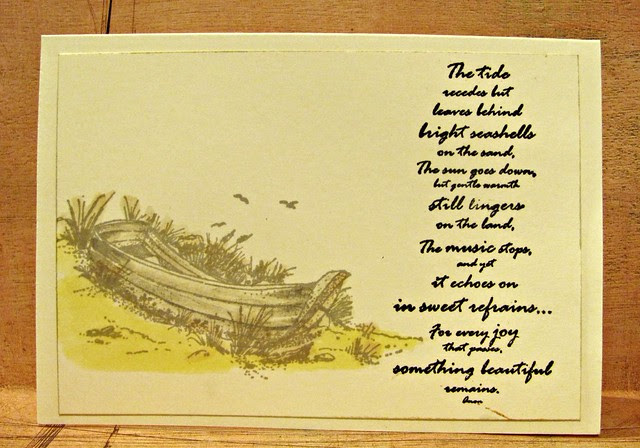 The tide
recedes but
leaves behind
bright seashells
on the sand,
The sun goes down,
but gentle warmth
still lingers
on the land,
The music stops,
and yet
it echoes on
in sweet refrains...
For every joy
that passes,
something beautiful
remains.
Anon